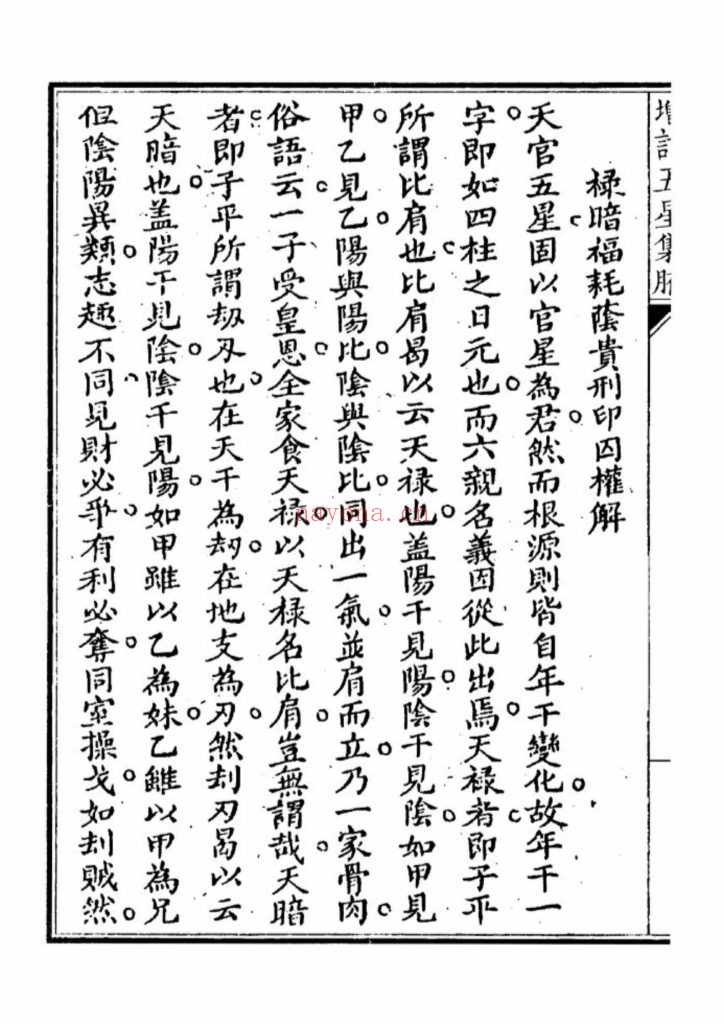 增訂五星集腋
祿暗福耗蔭貴刑印囚權解
天官五星固以官星為君然而根源則皆自年干變化故年干一
字即如四柱之日元也而六親名義因從此出焉天祿者即子平
所謂比肩也比肩曷以云天祿也盖陽干見陽陰干見陰如甲見
甲乙見乙陽與陽比陰與陰比同出一氣並肩而立乃一家骨肉
俗語云一子受皇恩全家食天祿以天祿名比肩豈無謂哉天暗
者即子平所謂刼刃也在天干為刼在地支為刃然刦刃曷以云
天暗也盖陽干見陰陰干見陽如甲雖以乙為妹乙雖以甲為兄
但陰陽異類志趣不同見財必爭有利必奪同室操戈如刦賊然
nayona.cn